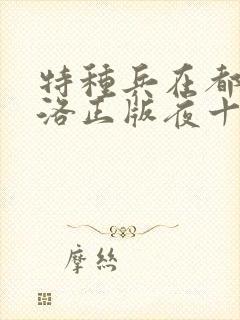 特種兵在都
洛正版夜十
摩絲